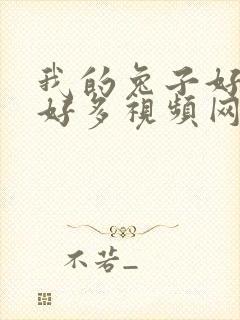 我的兔子好
好多視頻网
不若_